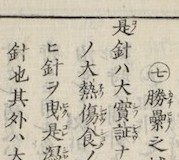 ㊆勝纍之
是針ハ大實証ナ
ノ大熱傷食ノ
ヒ針ヲ曳是
針也其外ハ大